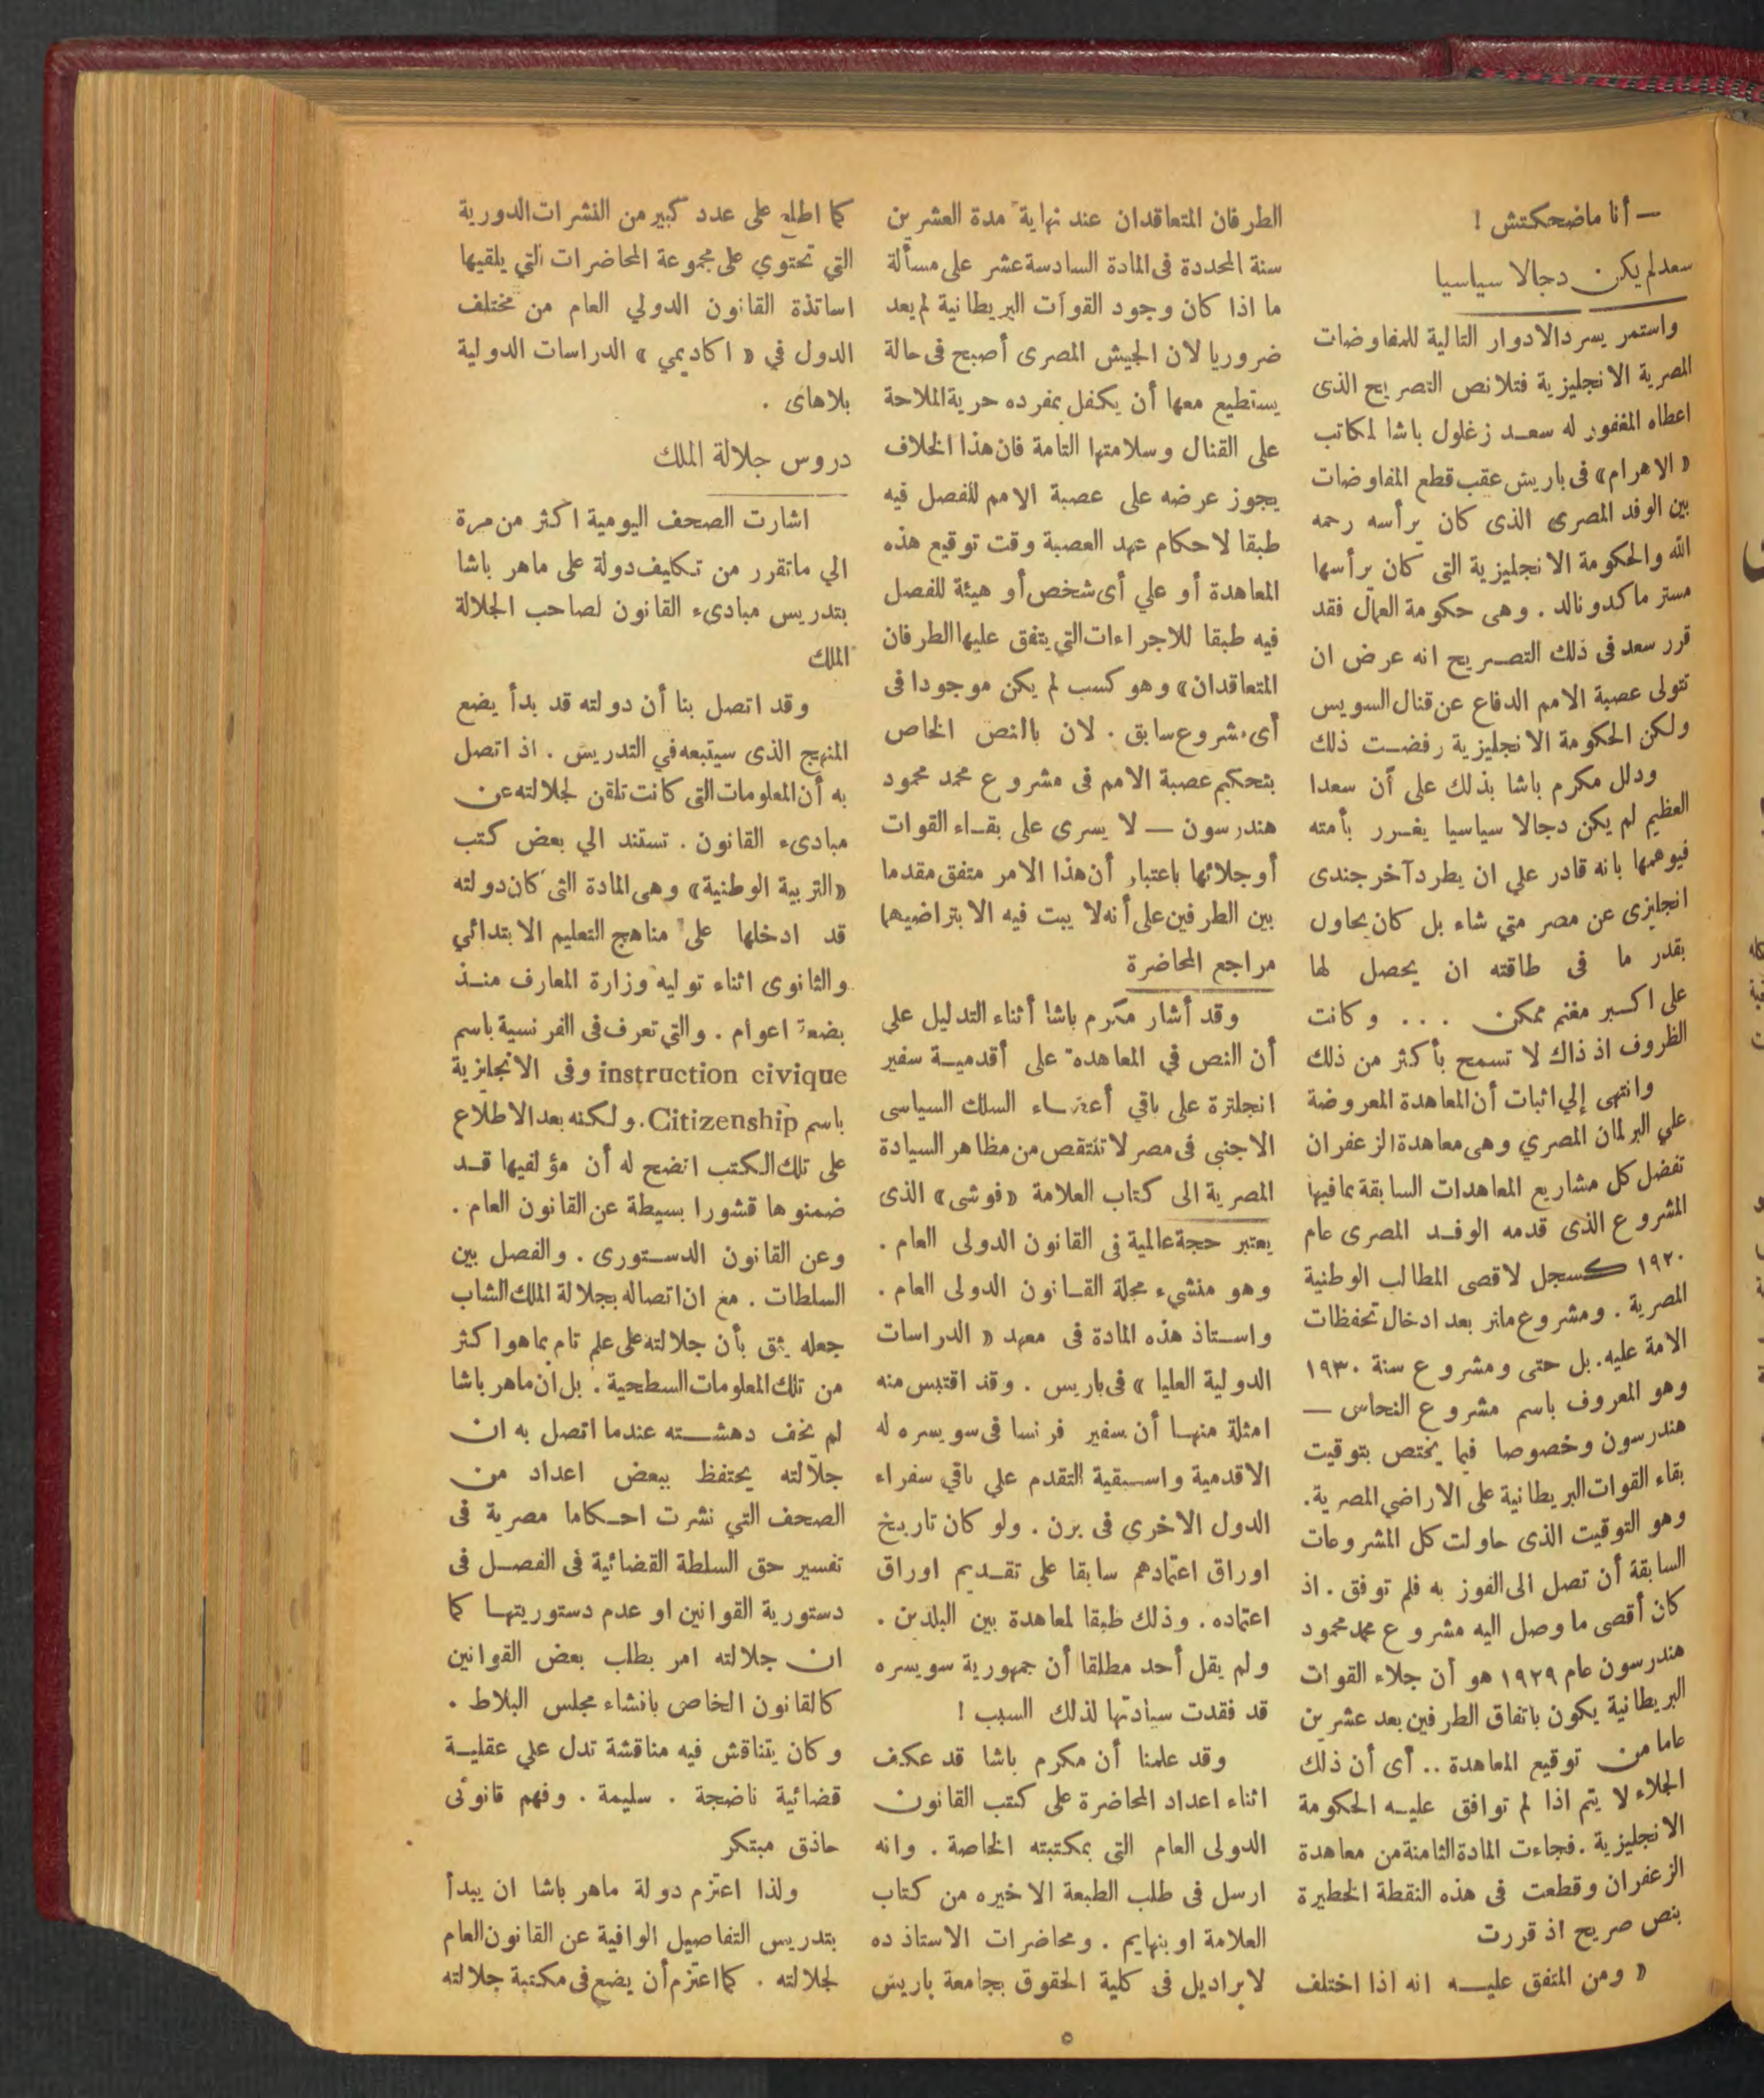 — أنا ماضحكتش !
سعد لم يكن دجالا سياسيا
واستمر يسرد الادوار التالية للمفاوضات
المصرية الانجليزية فتلا نص التصريح الذى
اعطاه المغفور له سعد زغلول باشا لمكاتب
« الاهرام » فى باريس عقب قطع المفاوضات
بين الوفد المصرى الذى كان يرأسه رحمه
الله والحكومة الانجليزية التى كان يرأسها
مستر ماكدونالد . وهى حكومة العمال فقد
قرر سعد فى ذلك التصريح انه عرض ان
تتولى عصبة الامم الدفاع عن قنال السويس
ولكن الحكومة الانجليزية رفضت ذلك
ودلل مكرم باشا بذلك على أن سعدا
العظيم لم يكن دجالا سياسيا يغرر بأمته
فيوهمها بانه قادر علي ان يطرد آخر جندى
انجليزى عن مصر متي شاء بل كان يحاول
بقدر ما فى طاقته ان يحصل لها
على اكبر مغنم ممكن . . . وكانت
الظروف اذ ذاك لا تسمح بأكثر من ذلك
وانتهى إلي اثبات أن المعاهدة المعروضة
علي البرلمان المصري وهى معاهدة الزعفران
تفضل كل مشاريع المعاهدات السابقة بما فيها
المشروع الذى قدمه الوفد المصرى عام
١٩٢٠ كسجل لاقصى المطالب الوطنية
المصرية . ومشروع ملنر بعد ادخال تحفظات
الامة عليه . بل حتى ومشروع سنة ١٩٣٠
وهو المعروف باسم مشروع النحاس —
هندرسون وخصوصا فيما يختص بتوقيت
بقاء القوات البريطانية على الاراضي المصرية .
وهو التوقيت الذى حاولت كل المشروعات
السابقة أن تصل الى الفوز به فلم توفق . اذ
كان أقصى ما وصل اليه مشروع محمد محمود
هندرسون عام ١٩٢٩ هو أن جلاء القوات
البريطانية يكون باتفاق الطرفين بعد عشرين
عاما من توقيع المعاهدة .. أى أن ذلك
الجلاء لا يتم اذا لم توافق عليه الحكومة
الانجليزية . فجاءت المادة الثامنة من معاهدة
الزعفران وقطعت فى هذه النقطة الخطيرة
بنص صريح اذ قررت
« ومن المتفق عليه انه اذا اختلف
الطرفان المتعاقدان عند نهاية مدة العشرين
سنة المحددة فى المادة السادسة عشر على مسألة
ما اذا كان وجود القوات البريطانية لم يعد
ضروريا لان الجيش المصرى أصبح فى حالة
يستطيع معها أن يكفل بمفرده حرية الملاحة
على القنال وسلامتها التامة فان هذا الخلاف
يجوز عرضه على عصبة الامم للفصل فيه
طبقا لاحكام عهد العصبة وقت توقيع هذه
المعاهدة أو علي أى شخص أو هيئة للفصل
فيه طبقا للاجراءات التي يتفق عليها الطرفان
المتعاقدان » وهو كسب لم يكن موجودا فى
أى مشروع سابق . لان بالنص الخاص
بتحكيم عصبة الامم فى مشروع محمد محمود
هندرسون — لا يسرى على بقاء القوات
أو جلائها باعتبار أن هذا الامر متفق مقدما
بين الطرفين على أنه لا يبت فيه الا بتراضيهما
مراجع المحاضرة
وقد أشار مكرم باشا أثناء التدليل علي
أن النص في المعاهدة على أقدمية سفير
انجلترة على باقي أعضاء السلك السياسى
الاجنبى فى مصر لا تنتقص من مظاهر السيادة
المصرية الى كتاب العلامة « فوشى » الذى
يعتبر حجة عالمية فى القانون الدولى العام .
وهو منشىء مجلة القانون الدولى العام .
واستاذ هذه المادة فى معهد « الدراسات
الدولية العليا » فى باريس . وقد اقتبس منه
امثلة منها أن سفير فرنسا فى سويسره له
الاقدمية واسبقية التقدم علي باقي سفراء
الدول الاخرى فى برن . ولو كان تاريخ
اوراق اعتمادهم سابقا على تقديم اوراق
اعتماده . وذلك طبقا لمعاهدة بين البلدين .
ولم يقل أحد مطلقا أن جمهورية سويسره
قد فقدت سيادتها لذلك السبب !
وقد علمنا أن مكرم باشا قد عكف
اثناء اعداد المحاضرة على كتب القانون
الدولى العام التى بمكتبته الخاصة . وانه
ارسل فى طلب الطبعة الاخيره من كتاب
العلامة اوبنهايم . ومحاضرات الاستاذ ده
لابراديل فى كلية الحقوق بجامعة باريس
كما اطلع على عدد كبير من النشرات الدورية
التي تحتوي على مجموعة المحاضرات التي يلقيها
اساتذة القانون الدولي العام من مختلف
الدول في « اكاديمي » الدراسات الدولية
بلاهاى .
دروس جلالة الملك
اشارت الصحف اليومية اكثر من مرة
الي ماتقرر من تكليف دولة على ماهر باشا
بتدريس مبادىء القانون لصاحب الجلالة
الملك
وقد اتصل بنا أن دولته قد بدأ يضع
المنهج الذى سيتبعه في التدريس . اذ اتصل
به أن المعلومات التى كانت تلقن لجلالته عن
مبادىء القانون . تستند الي بعض كتب
« التربية الوطنية » وهى المادة التى كان دولته
قد ادخلها على مناهج التعليم الابتدائي
والثانوى اثناء توليه وزارة المعارف منذ
بضعة اعوام . والتي تعرف فى الفرنسية باسم
instruction civique وفى الانجليزية
باسم Citizenship . ولكنه بعد الاطلاع
على تلك الكتب اتضح له أن مؤلفيها قد
ضمنوها قشورا بسيطة عن القانون العام .
وعن القانون الدستورى . والفصل بين
السلطات . مع ان اتصاله بجلالة الملك الشاب
جعله يثق بأن جلالته على علم تام بما هو اكثر
من تلك المعلومات السطحية . بل ان ماهر باشا
لم يخف دهشته عندما اتصل به ان
جلالته يحتفظ ببعض اعداد من
الصحف التي نشرت احكاما مصرية فى
تفسير حق السلطة القضائية فى الفصل فى
دستورية القوانين او عدم دستوريتها كما
ان جلالته امر بطلب بعض القوانين
كالقانون الخاص بانشاء مجلس البلاط .
وكان يتناقش فيه مناقشة تدل علي عقلية
قضائية ناضجة . سليمة . وفهم قانونى
حاذق مبتكر
ولذا اعتزم دولة ماهر باشا ان يبدأ
بتدريس التفاصيل الوافية عن القانون العام
لجلالته . كما اعتزم أن يضع فى مكتبة جلالته
٥